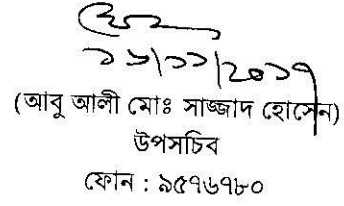 ১৬/১১/২০১৭
(আবু আলী মোঃ সাজ্জাদ হোসেন)
উপসচিব
ফোন : ৯৫৭৬৭৮০